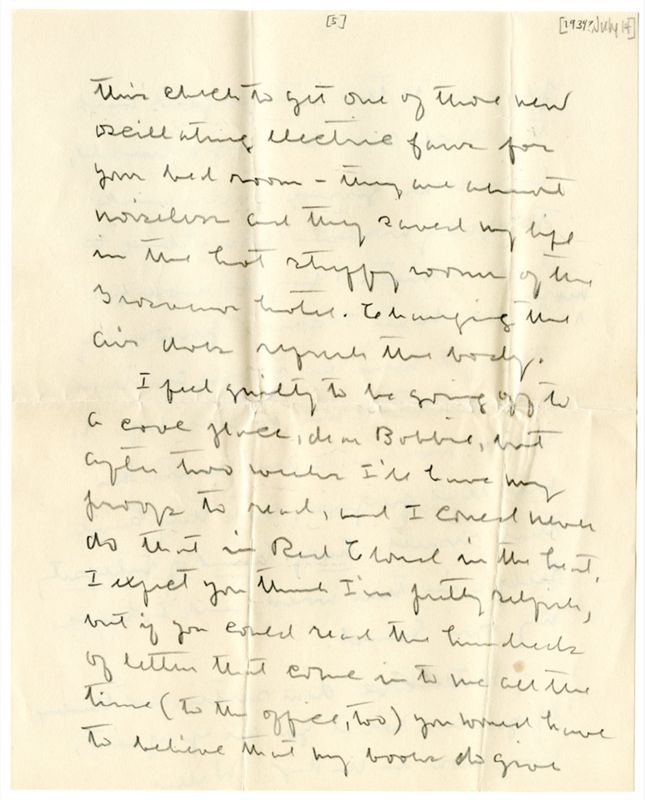 [5]
[1934? July 14]
this check to get one of those new
oscillating electric fans for
your bed room - they are almost
noiseless and they saved my life
in the hot stuffy rooms of the
Grosvenor hotel. Changing the
air does refresh the body.
I feel guilty to be going off to
a cool place, dear Bobbie, but
after two weeks I'll have my
proofs to read, and I could never
do that in Red Cloud in the heat.
I expect you think I'm pretty selfish,
but if you could read the hundreds
of letters that come in to me all the
time (to the office, too) you would have
to believe that my books do give